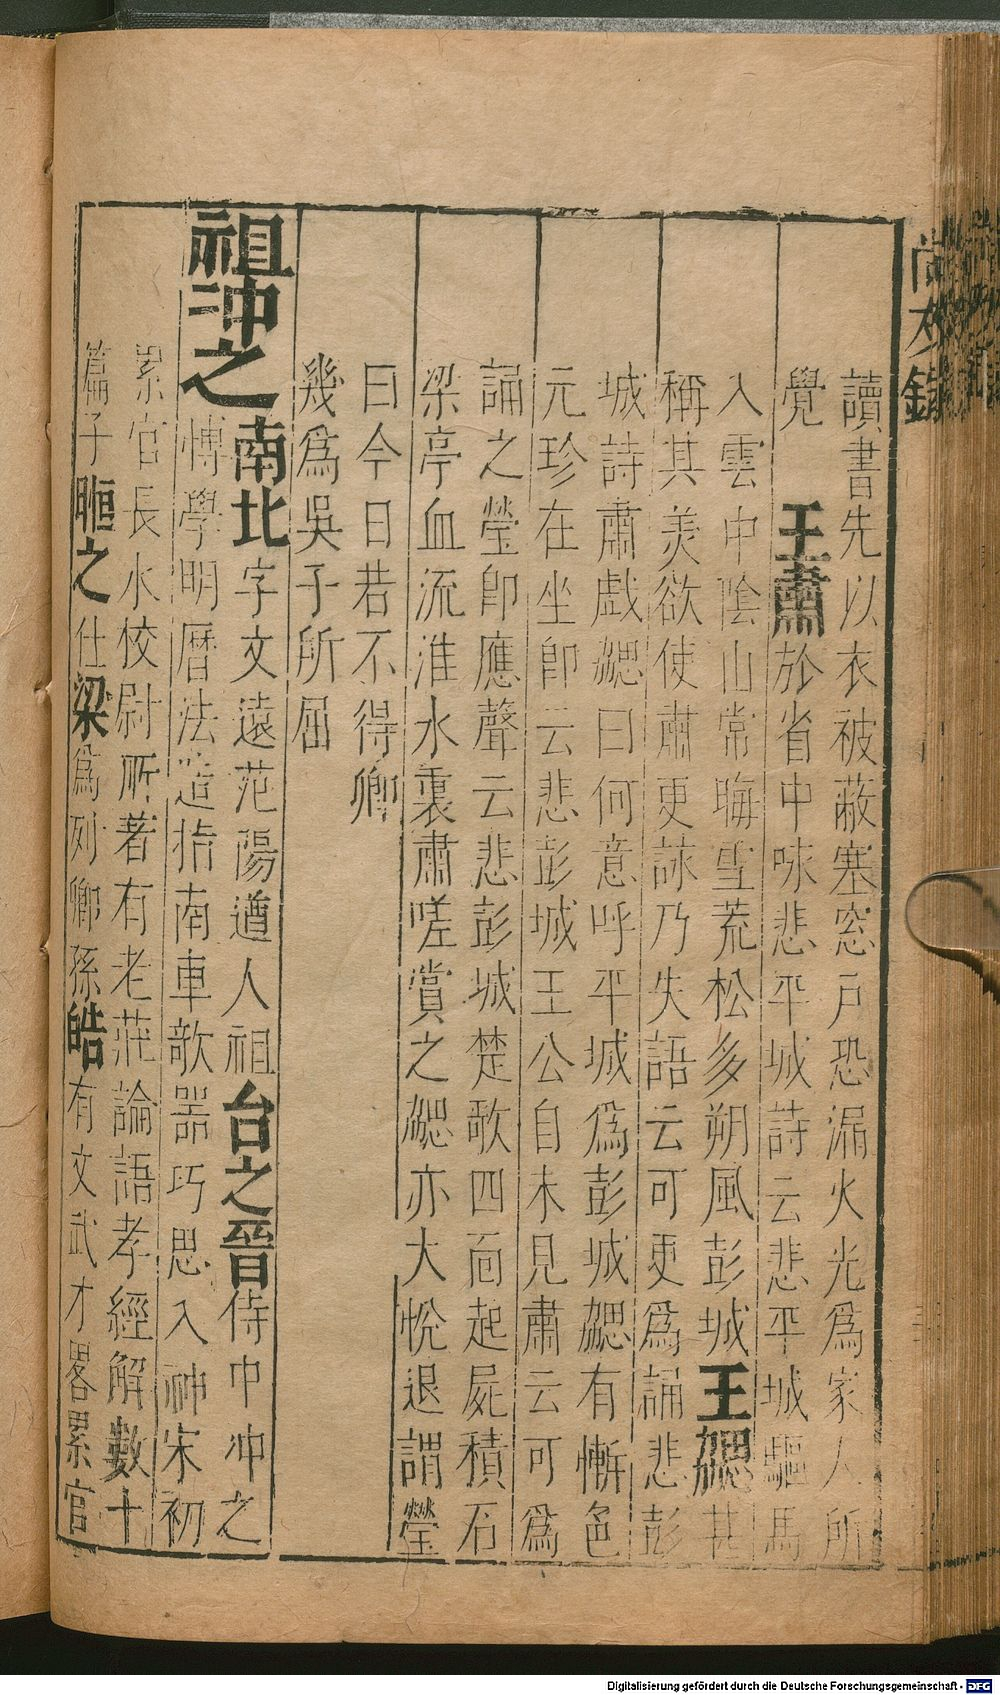 尚友錄
讀書先以衣被蔽塞窓戶恐漏火光爲家人所
覺 王肅於省中咏悲平城詩云悲平城驅馬
入雲中陰山常晦雪荒松多朔風彭城王勰甚
稱其美欲使肅更詠乃失語云可更爲誦悲彭
城詩肅戲勰曰何意呼平城爲彭城勰有慚色
元珍在坐卽云悲彭城王公自未見肅云可爲
誦之瑩卽應聲云悲彭城楚歌四面起屍積石
梁亭血流淮水裏肅嗟賞之勰亦大悅退謂瑩
曰今日若不得卿
幾爲吳子所屈
祖沖之 南北 字文遠范陽遒人祖台之晉侍中冲之
博學明曆法造指南車欹器巧思入神宋初
累官長水校尉所著有老莊論語孝經解數十
篇子暅之仕梁爲列卿孫皓有文武才畧累官
Digitalisierung gefördert durch die Deutsche Forschungsgemeinschaft - DFG